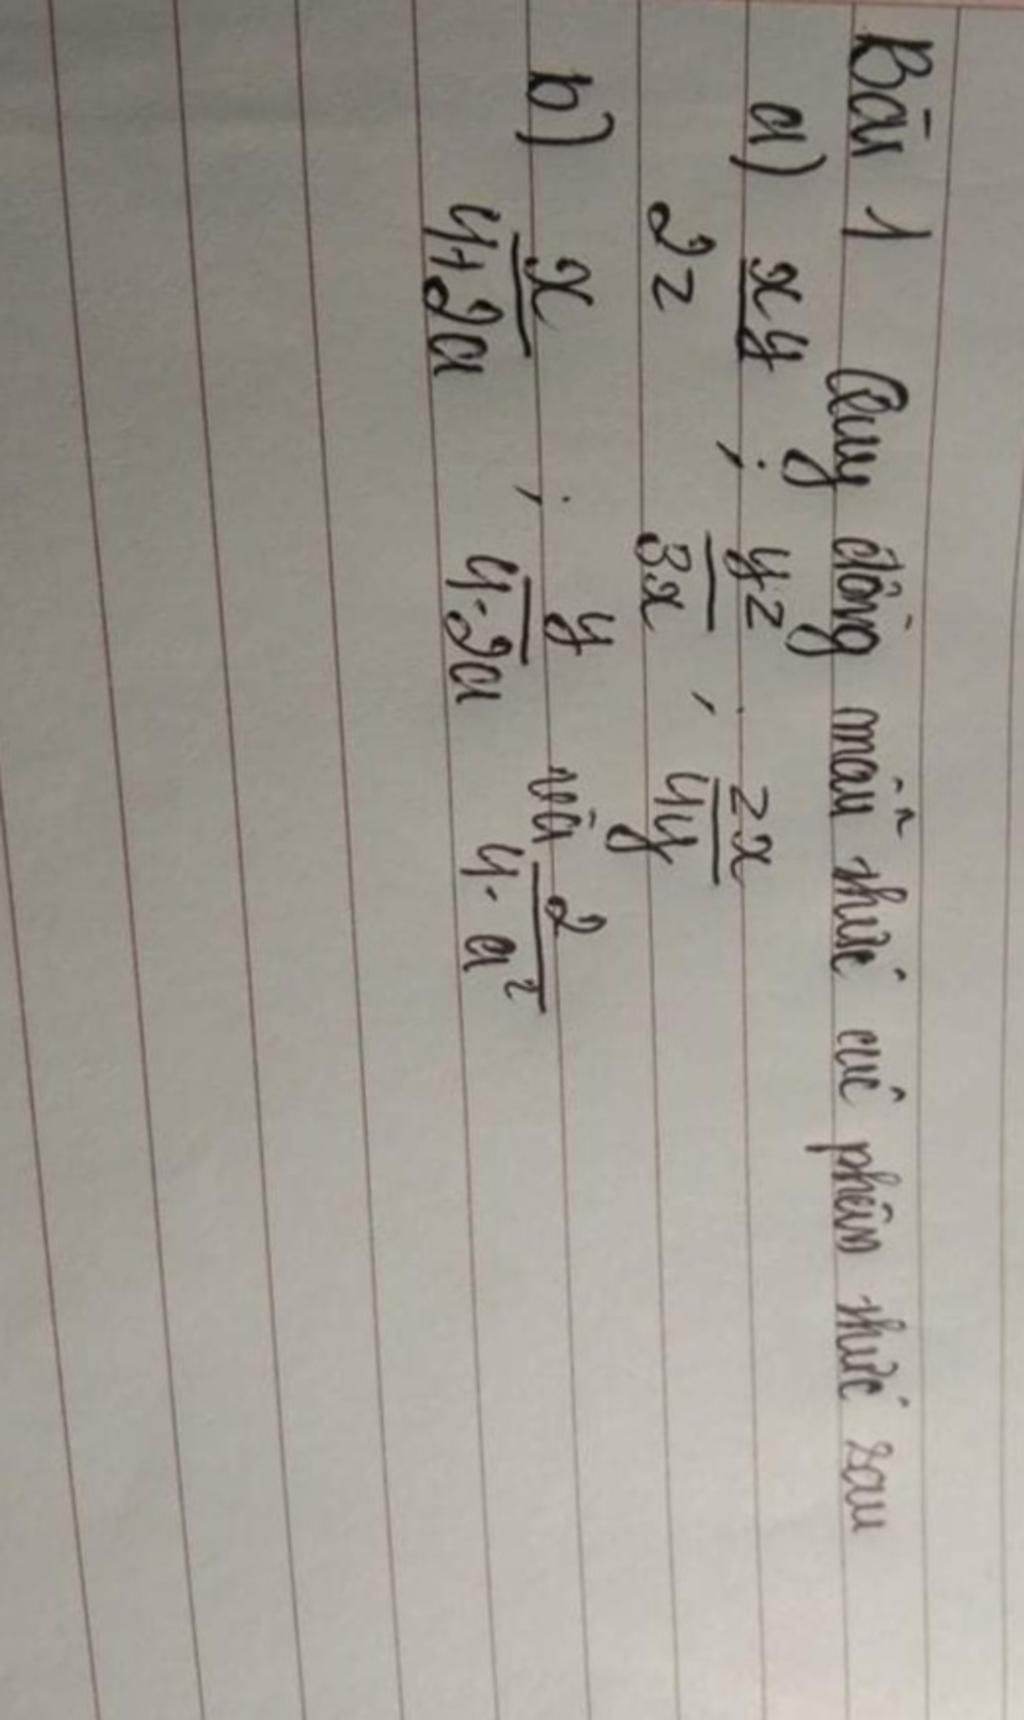 Bài 1 Quy đồng mẫu thức các phân thức sau
a) xy/2z ; yz/3x ; zx/4y
b) x/4+2a ; y/4-2a và 2/4-a²